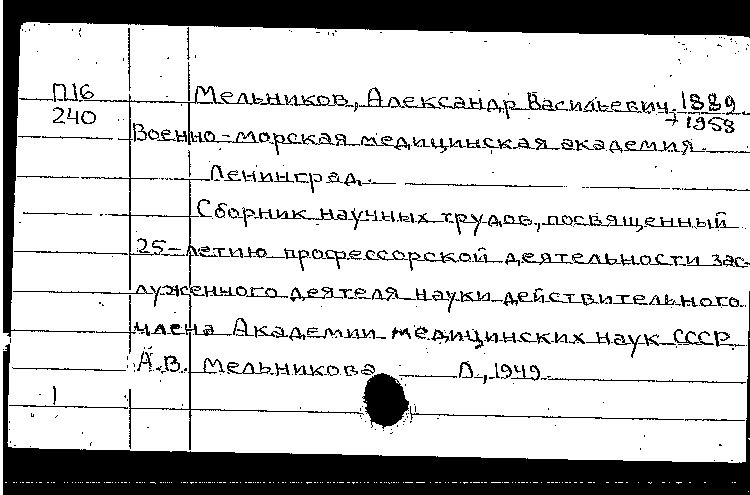 П16 Мельников, Александр Васильевич, 1889
240 +1958
Военно-морская медицинская академия.
Ленинград.
Сборник научных трудов, посвященный
25-летию профессорской деятельности зас-
луженного деятеля науки действительного
члена Академии медицинских наук СССР
А.В. Мельникова Л., 1949.
1